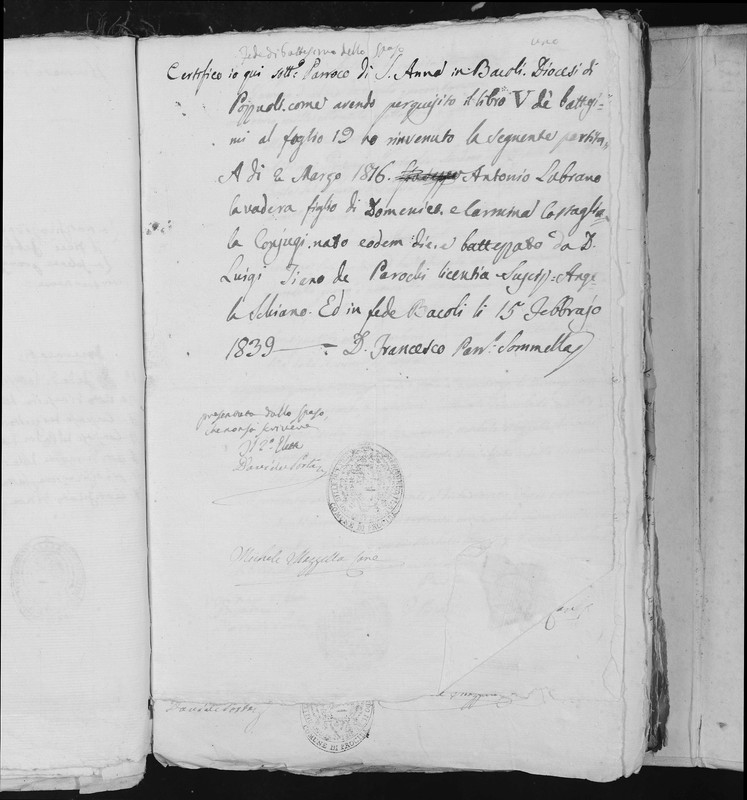 Fede di battesimo dello Sposo
uno
Certifico io qui sott.o Parroco di S. Anna in Bacoli. Diocesi di
Pozzuoli. come avendo perquisito il libro V de battesi-
mi al foglio 19 ho rinvenuto la seguente partita.
A di 2 Marzo 1816. Antonio Labrano
lavadera figlio di Domenico. e Carmina Costaglio-
la Conjugi. nato eodem die. e battezzato da D.
Luigi de Parochi licentia Ange-
la Schiano. Ed in fede Bacoli li 15 Febbrajo
1839 D. Francesco Parr. Sommella
presentata dallo sposo,
che non sa scrivere
Davide Posta
COMUNE DI PROCIDA
Michele Mazzella
Davide Posta
COMUNE DI PROCIDA